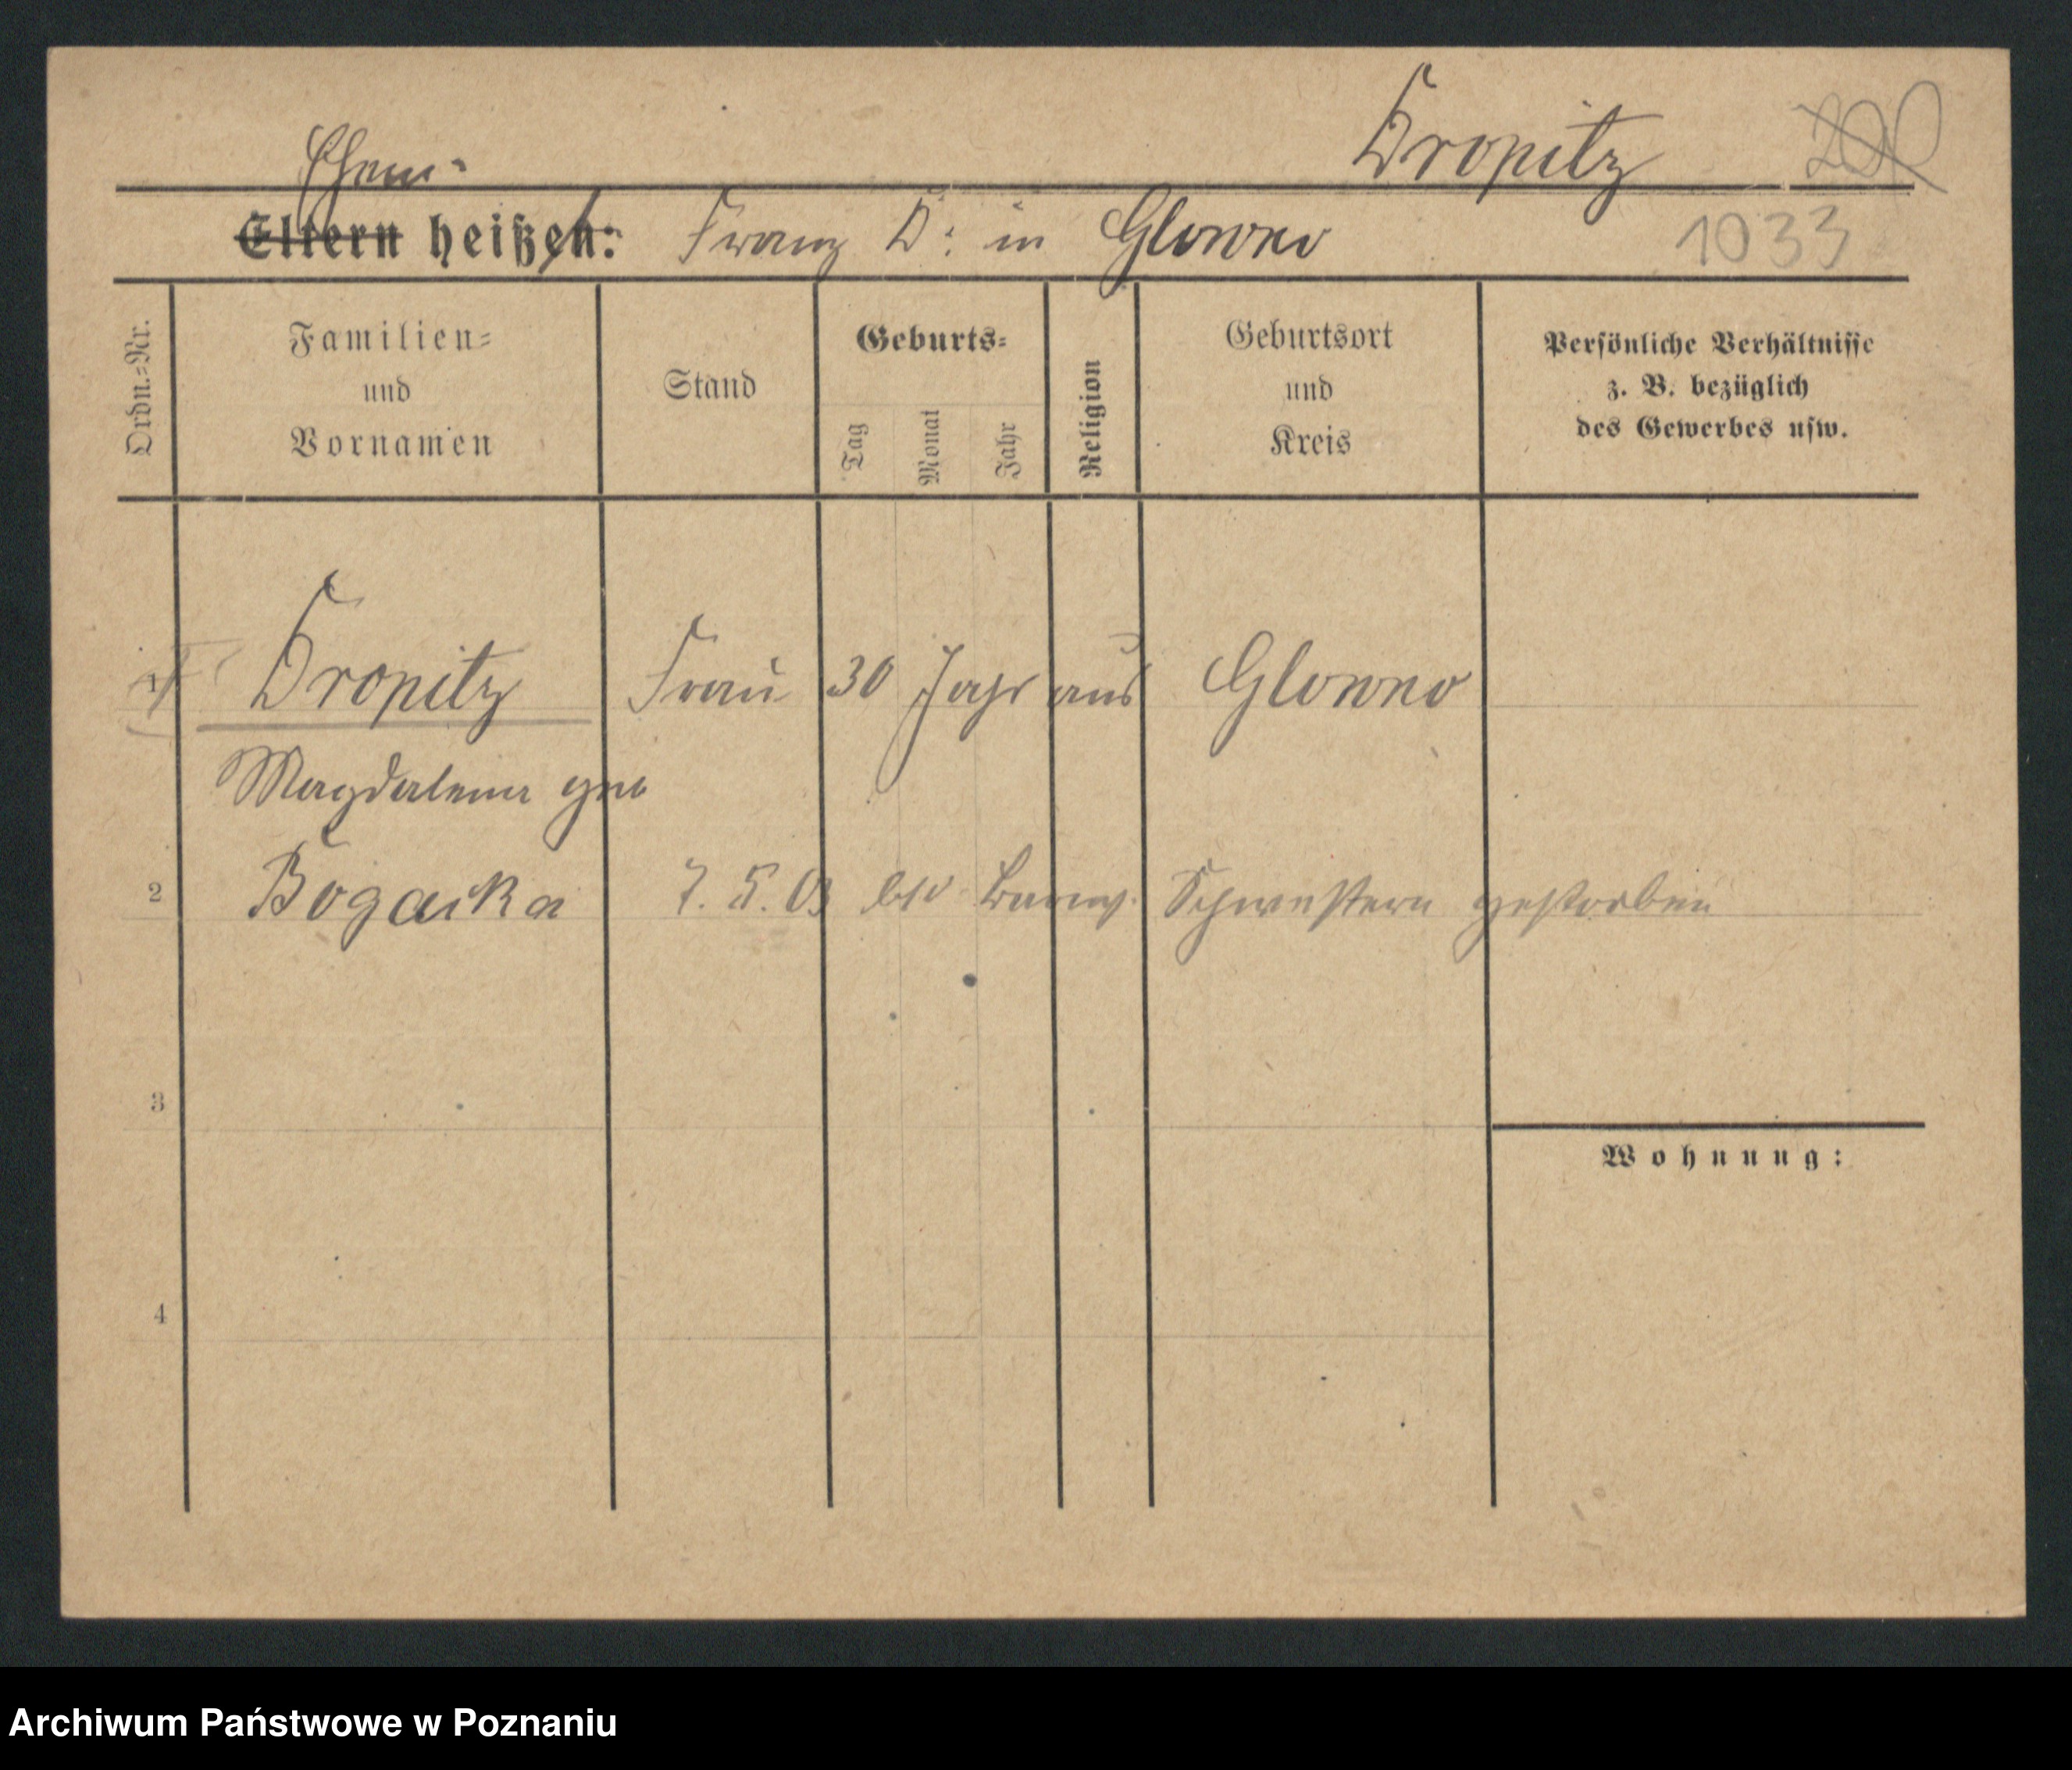 Dropitz 200
Ehem.
Eltern heißen: Franz D: in Glowno 1033
Ordn.=Nr.
Familien=
und
Vornamen
Stand
Geburts=
Tag
Monat
Jahr
Religion
Geburtsort
und
Kreis
Persönliche Verhältnisse
z. B. bezüglich
des Gewerbes usw.
1 Dropitz Frau 30 Jahr aus Glowno
Magdalena geb
2 Bogacka 7. 5. 03 bei Barmh. Schwestern gestorben
3
Wohnung:
4
Archiwum Państwowe w Poznaniu